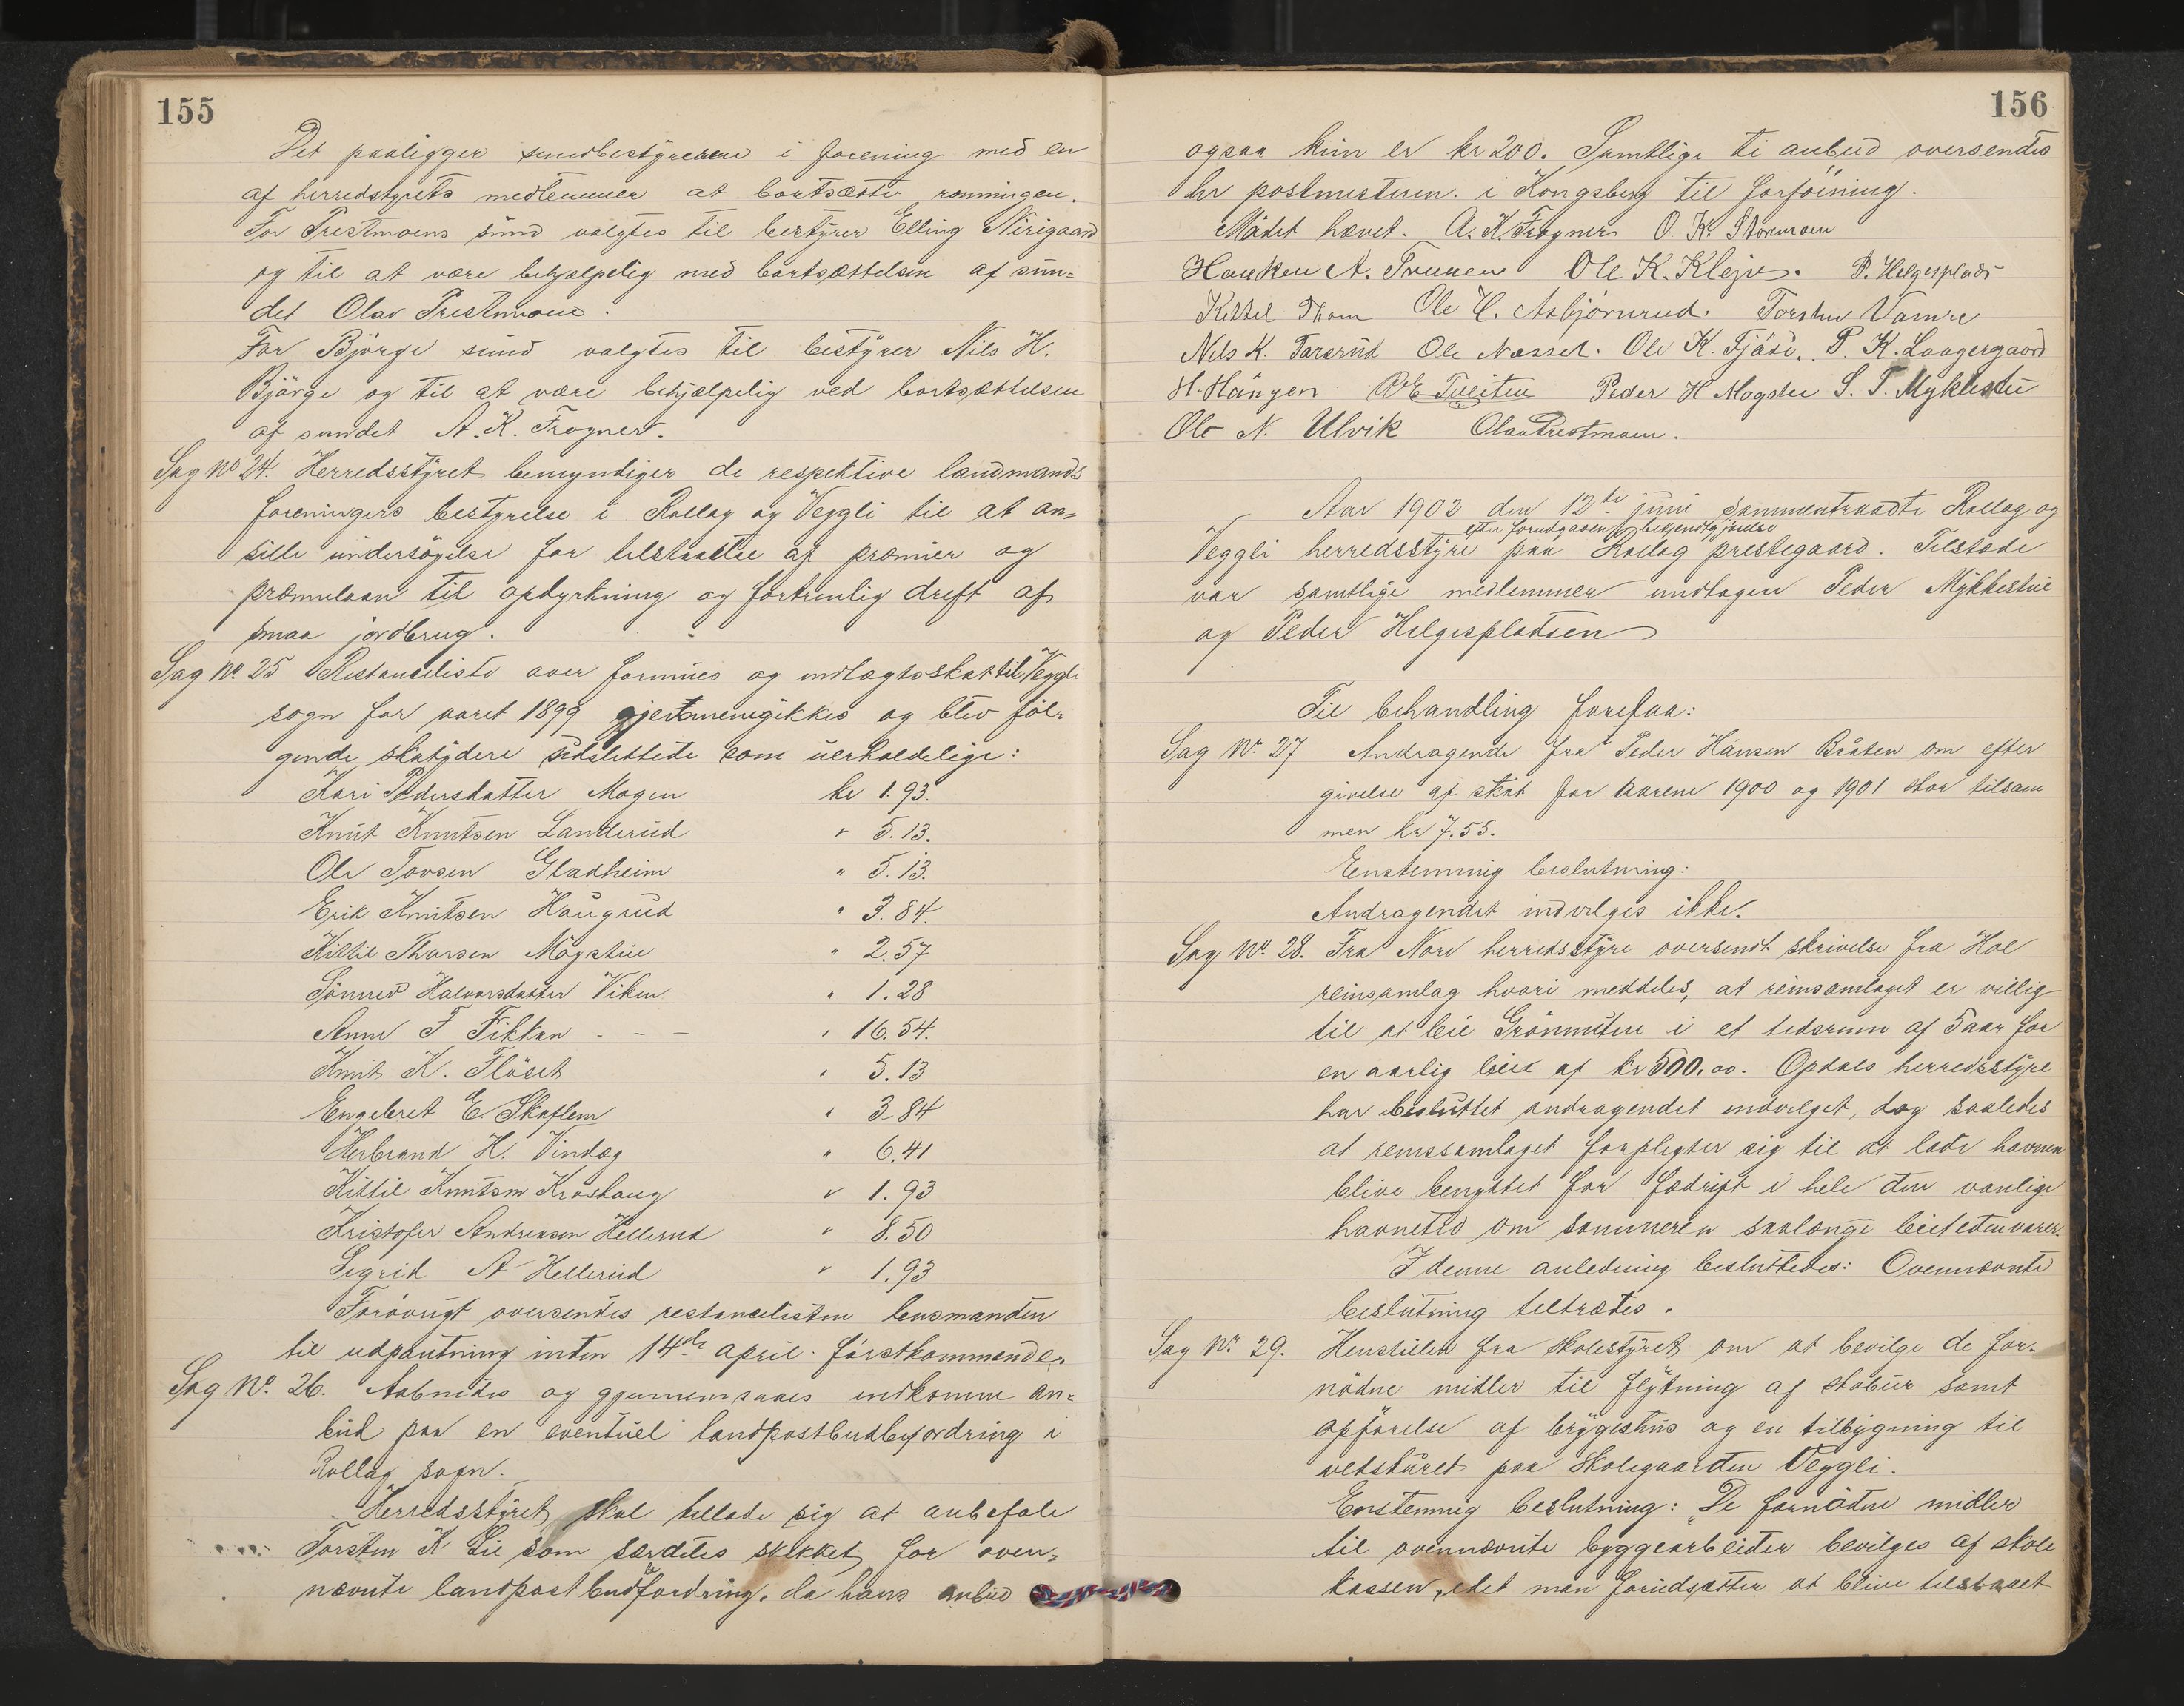 155
Det paaligger sundbestyreren i forening med en
af herredstyrets medlemmer at bortsætte roningen.
For Prestmoens sund valgtes til bestyrer Elling Nirigaard
og til at være behjælpelig med bortsættelsen af sun=
det Olav Prestmoen.
For Bjørge sund valgtes til bestyrer Nils H.
Bjørge og til at være behjælpelig ved bortsættelsen
af sundet A. K. Frogner.
Sag No 24. Herredsstyret bemyndiger de respektive landmands
foreningers bestyrelse i Rollag og Veggli til at an=
stille undersøgelse for tilstaaelse af præmier og
præmielaan til opdyrkning og fortrinlig drift af
smaa jordbrug.
Sag No. 25 Restanceliste over formues og indtægtsskat til Veggli
sogn for aaret 1899 gjennemgikkes og blev føl-
gende skatydere udslettede som uerholdelige:
Kari Pedersdatter Mogen kr 1.93.
Knut Knutsen Landerud " 5.13.
Ole Tovsen Gladheim " 5.13.
Erik Knutsen Haugrud " 3.84.
Kittil Thorsen Møgstue " 2.57
Synnev Halvorsdatter Viken " 1.28
Anne T Fikkan - - - " 16.54.
Knut K. Fløset " 5.13
Engebret E. Skaflem " 3 84
Herbrand H. Vindeg " 6.41
Kittil Knutsen Kroshaug " 1.93
Kristofer Andreasen Hellerud " 8.50
Sigrid A Hellerud " 1.93
Forøvrigt oversendes restancelisten lensmanden
til udpantning inden 14de april førstkommende.
Sag No. 26. Aabnedes og gjennemsaaes indkomne an=
bud paa en eventuel landpostbudbefordring i
Rollag sogn.
Herredsstyret skal tillade sig at anbefale
Torsten K Lie som særdeles skikket for oven=
nævnte landpostbudbefordring, da hans anbud
156
ogsaa kun er kr 200. Samtlige ti anbud oversendes
hr postmesteren i Kongsberg til forføining.
Mødet hævet. A. K. Frogner O. K. Stormoen
Haaken A. Traaen Ole K. Kleiv. P. Helgesplads
Kittil Thom Ole H. Asbjørnrud. Torsten Vamre
Nils K. Tarsrud Ole Næsset. Ole K. Fjøse. P. K. Laagergaard
H. Hängen OE Tveiten Peder H Mogstu S. T. Myklestu
Ole N. Ulvik Olav Prestmoen.
Aar 1902 den 12te juni sammentraadte Rollag og
efter forudgaaende bekjendtgjørelse
Veggli herredsstyre paa Rollag prestegaard. Tilstede
var samtlige medlemmer undtagen Peder Mykkestue
og Peder Helgespladsen
Til behandling forelaa:
Sag No. 27 Andragende fra Peder Hansen Bråten om efter
givelse af skat for aarene 1900 og 1901 stor tilsam
men kr 7.55.
Enstemmig beslutning:
Andragendet indvilges ikke.
Sag No. 28. Fra Nore herredsstyre oversendt skrivelse fra Hol
reinsamlag hvori meddeles, at reinsamlaget er villig
til at leie Grønnuten i et tidsrum af 5 aar for
en aarlig leie af kr 500.00. Opdals herredsstyre
har besluttet andragendet indvilget, dog saaledes
at reinssamlaget forpligter sig til at lade havnen
blive benyttet for fædrift i hele den vanlige
havnetid om sommeren saalænge leietiden varer.
I denne anledning besluttedes: Ovennævnte
beslutning tiltrædes.
Sag No. 29. Henstillen fra skolestyret om at bevilge de for-
nødne midler til flytning af stabur samt
opførelse af bryggehus og en tilbygning til
vedskuret paa skolegaarden Veggli.
Enstemmig beslutning: De fornødne midler
til ovennævnte byggearbeider bevilges af skole
kassen, idet man forudsætter at blive tilstaaet